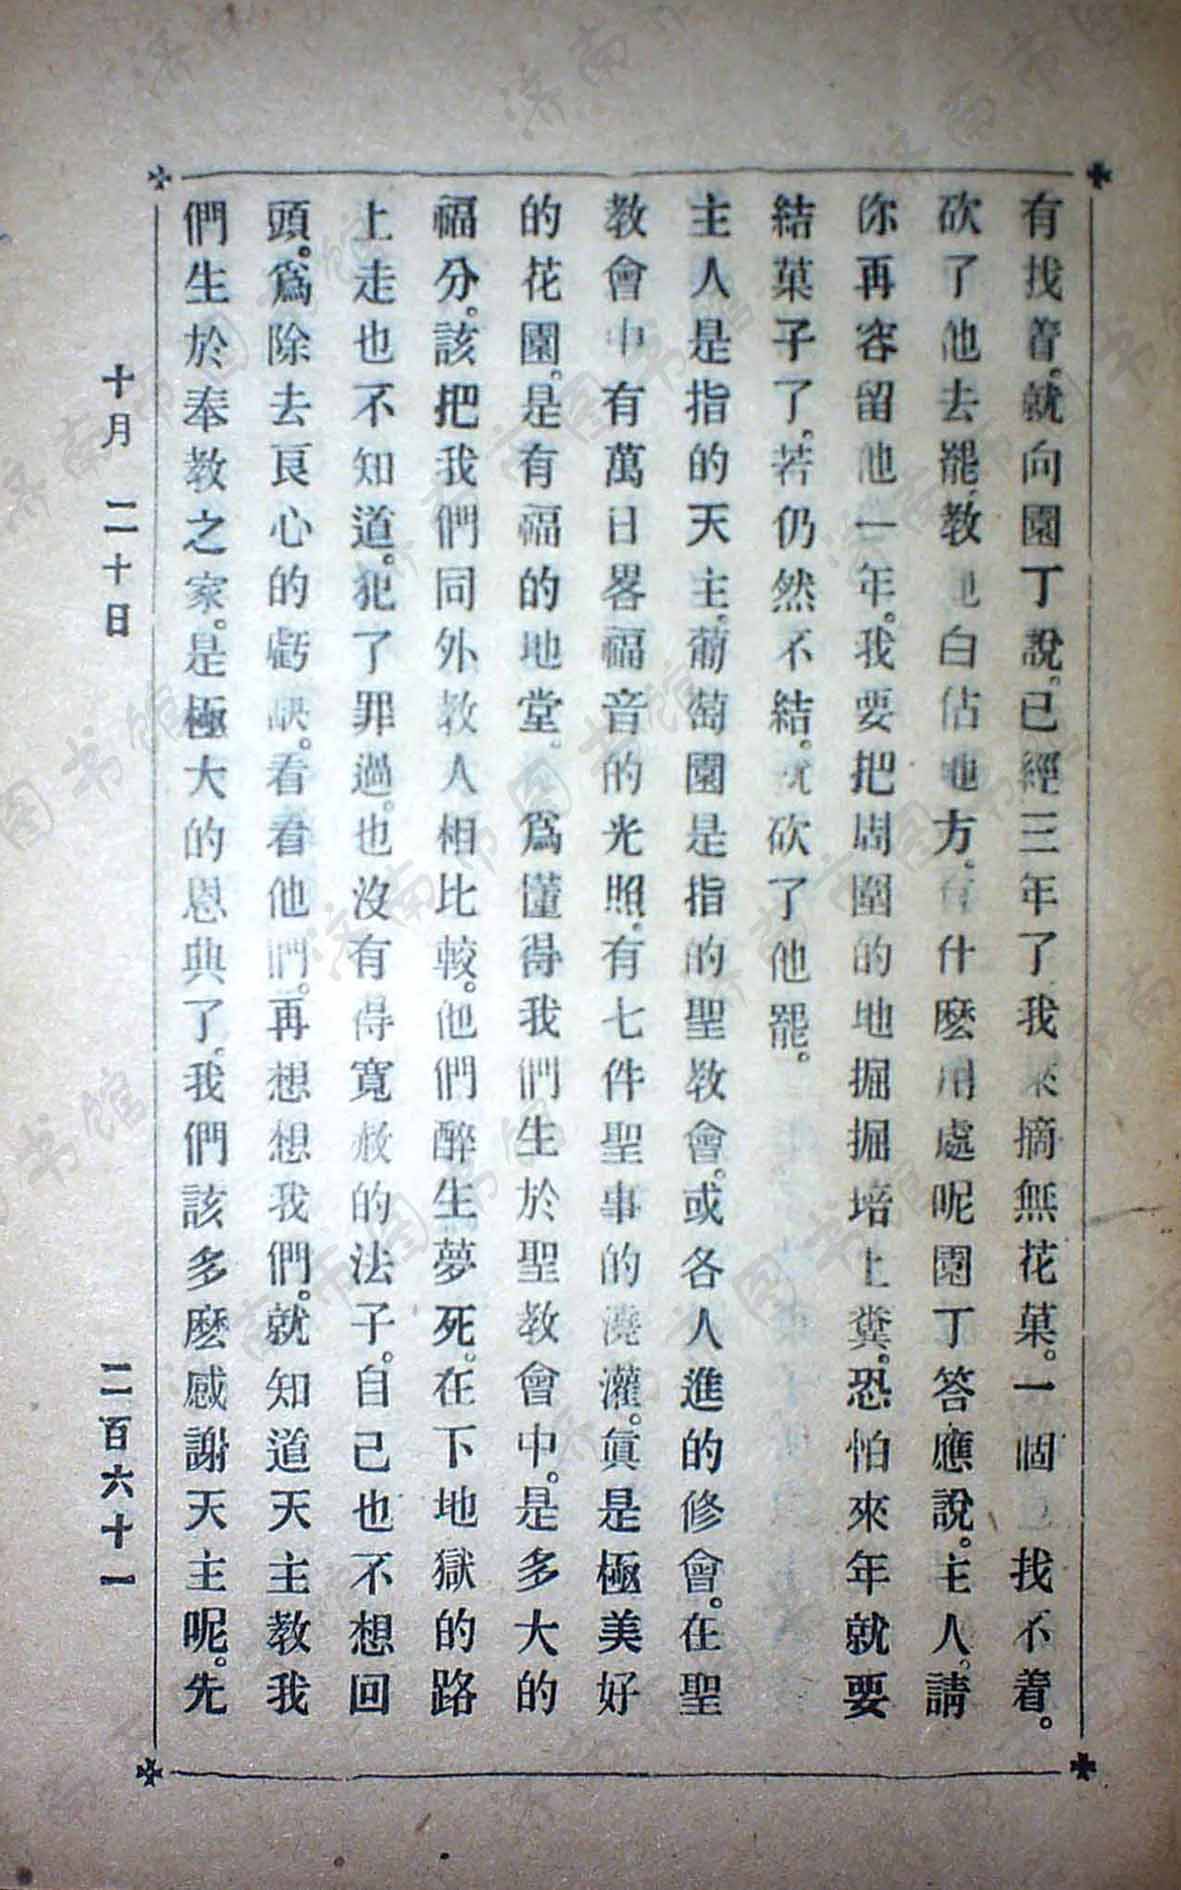 有找着。就向園丁說。已經三年了。我來摘無花菓。一個也找不着。
砍了他去罷。教他白佔地方。有什麽用處呢。園丁答應說。主人。請
你再容留他一年。我要把周圍的地掘掘培上糞。恐怕來年就要
結菓子了。若仍然不結。就砍了他罷。
主人是指的天主。葡萄園是指的聖教會。或各人進的修會。在聖
教會中有萬日畧福音的光照。有七件聖事的澆灌。眞是極美好
的花園。是有福的地堂。爲懂得我們生於聖教會中。是多大的
福分。該把我們同外教人相比較。他們醉生夢死。在下地獄的路
上走也不知道。犯了罪過。也沒有得寬赦的法子。自己也不想回
頭。爲除去良心的虧缺。看看他們。再想想我們。就知道天主教我
們生於奉教之家。是極大的恩典了。我們該多麽感謝天主呢。先
十月 二十日 二百六十一
济南市图书馆